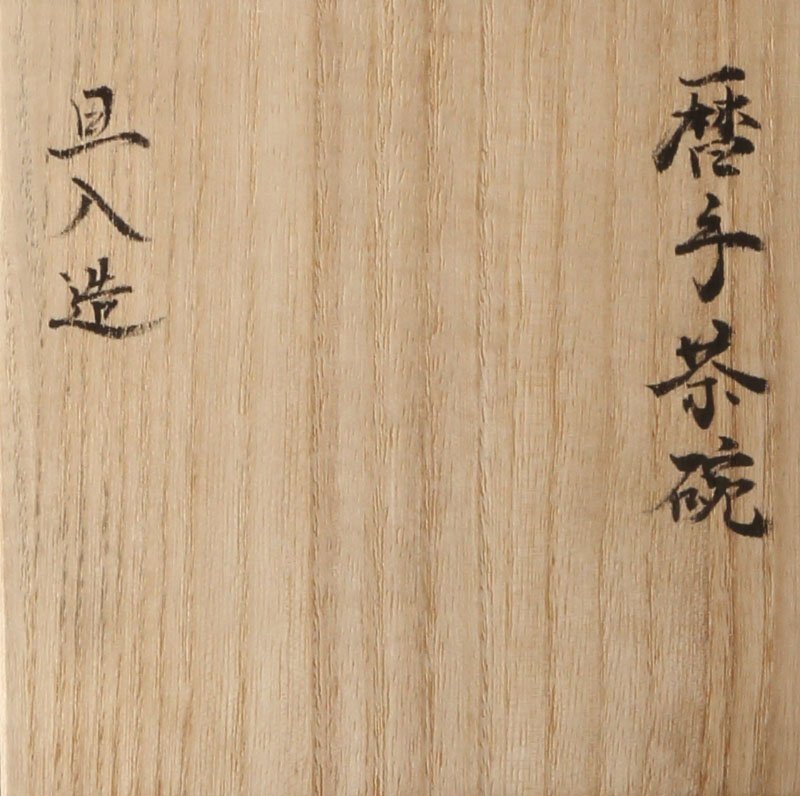 暦手茶碗
旦入造